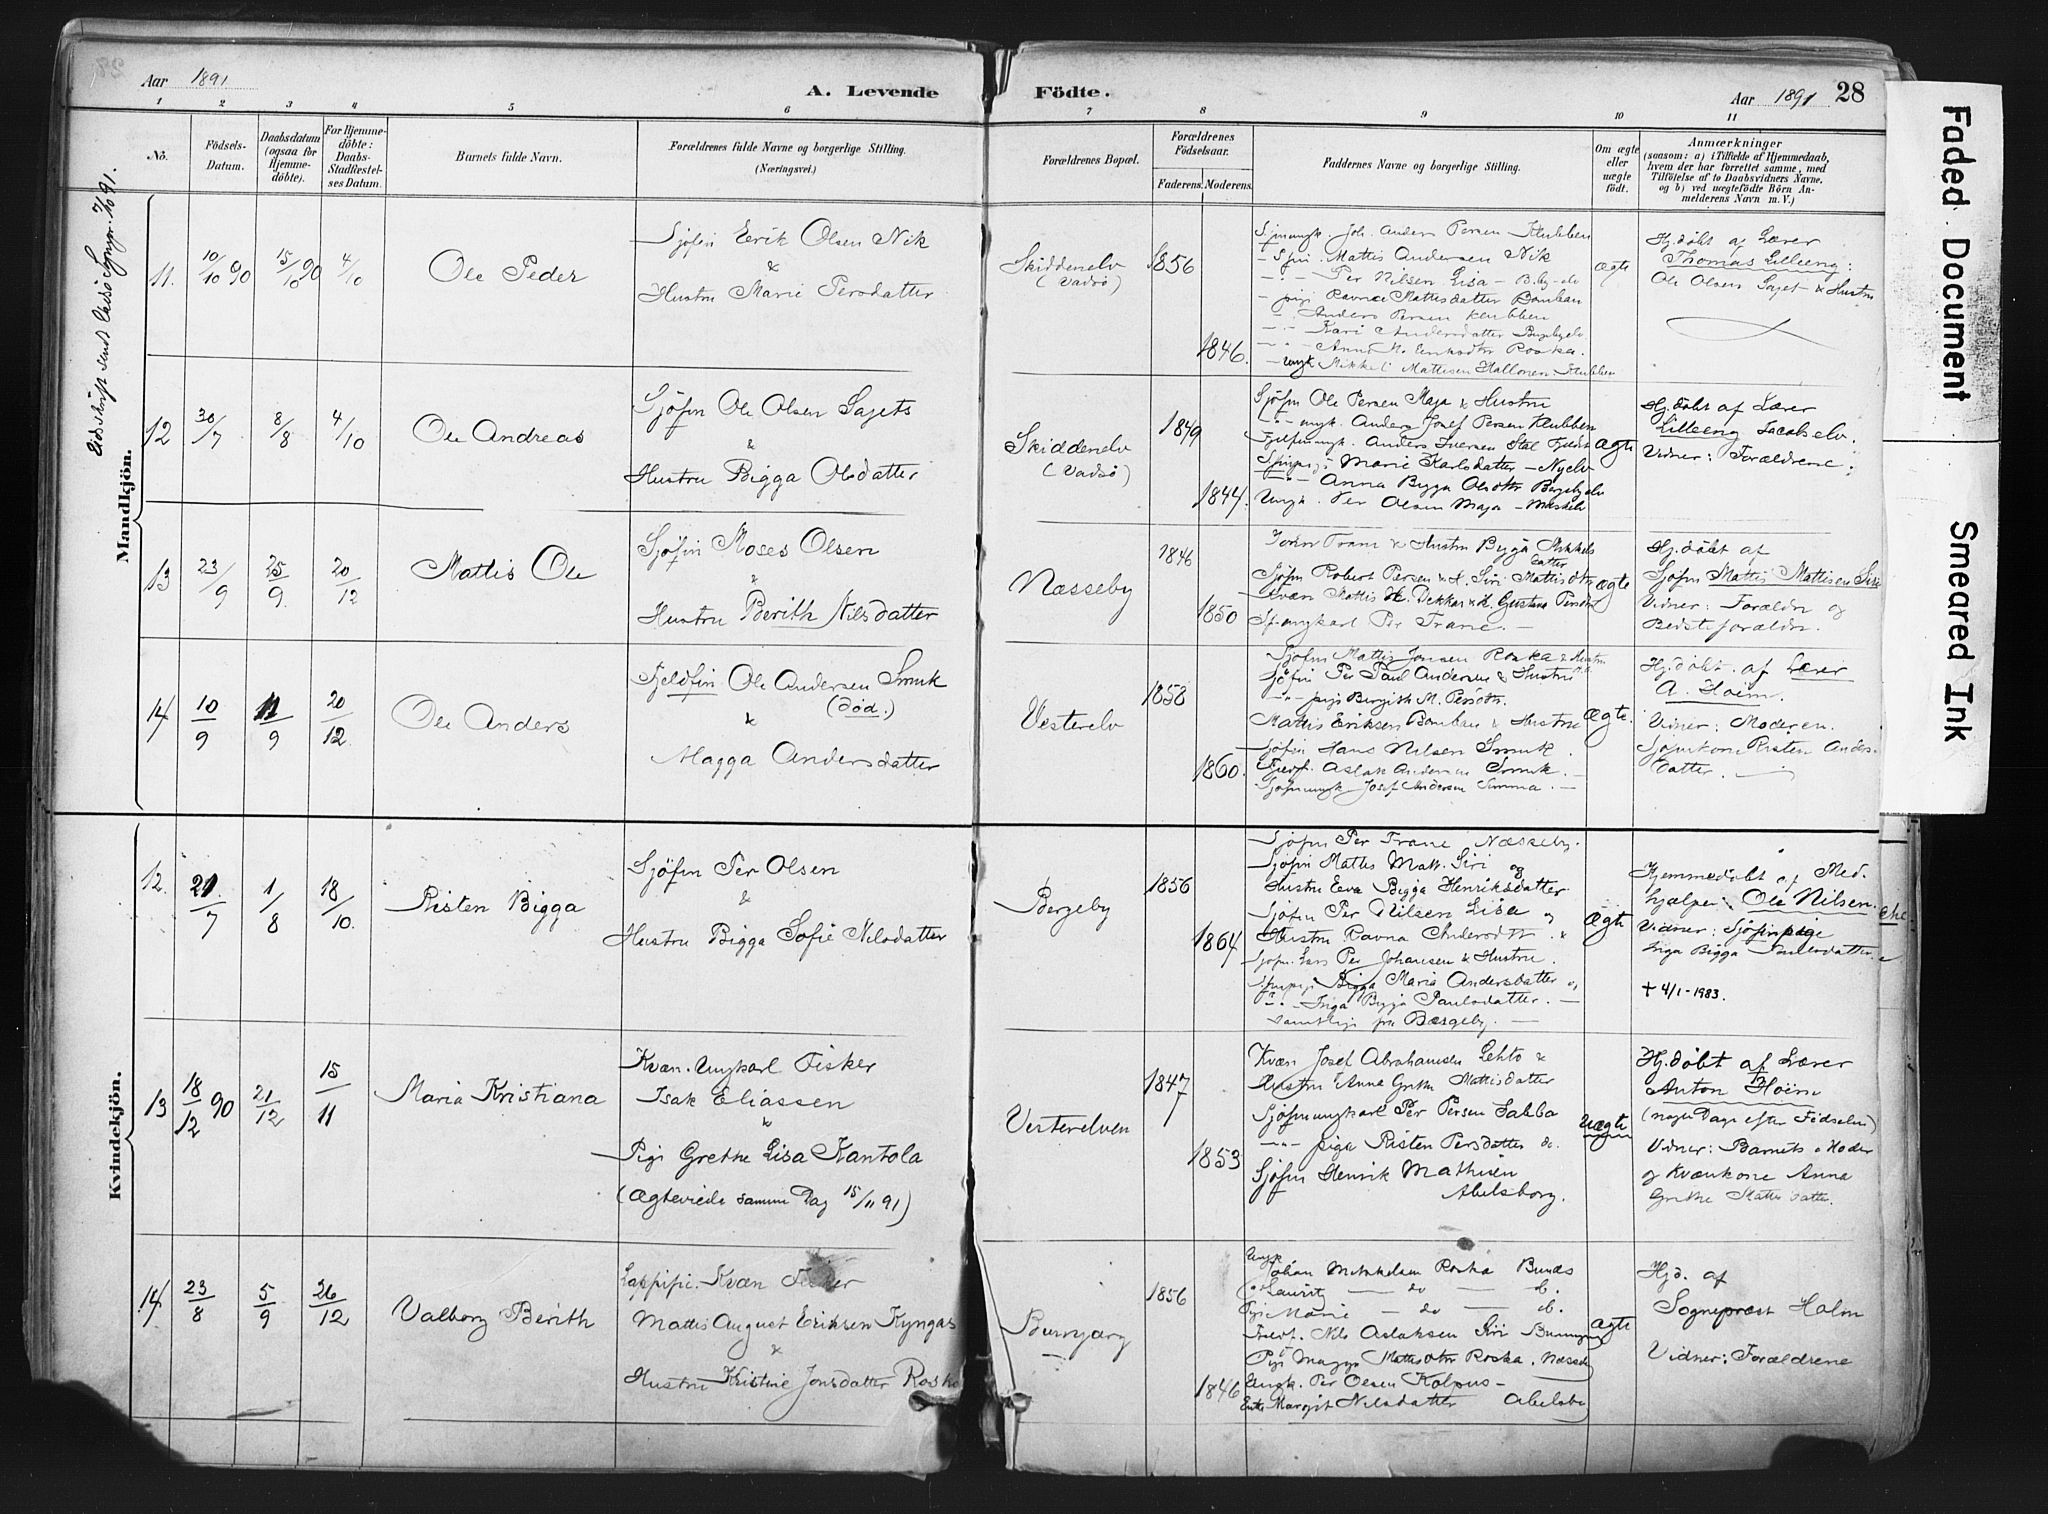 Aar 1891
A. Levende Födte.
Aar 1891 28
1 2 3 4 5 6 7 8 9 10 11
No.
Födsels-Datum.
Daabsdatum (ogsaa for Hjemme-döbte).
For Hjemme-döbte: Daabs-Stadfæstel-ses Datum.
Barnets fulde Navn.
Forældrenes fulde Navne og borgerlige Stilling.
(Næringsvei.)
Forældrenes Bopæl.
Forældrenes Födselsaar.
Faderens. Moderens.
Faddernes Navne og borgerlige Stilling.
Om ægte eller uægte födt.
Anmærkninger
(saasom: a) i Tilfælde af Hjemmedaab,
hvem der har forrettet samme, med
Tilföielse af to Daabsvidners Navne.
og b) ved uægtefödte Börn An-
melderens Navn m. V.)
Mandkjön.
11. 10/10 90 15/10 90 4/10
Ole Peder
Sjöfin Erik Olsen Nik
&
Hustru Marie Persdatter
Skiddenelv
(Vadsö)
1856
1846.
Joh. Anders Persen Klubben
Mattis Andersen Nik
Per Nilsen Lisa
Ravna Mattisdatter Bonkau
Anders Persen Klubben
Kari Andersdatter
Mikkel Mattisen Hallonen
ægte
Hj.döbt af Lærer
Thomas Lilleeng:
Ole Olsen Sajet & Hustru
12 30/7 8/8 4/10
Ole Andreas
Sjöfin Ole Olsen Sajets
&
Hustru Bigga Olsdatter
Skiddenelv
(Vadsö)
1849
1844.
Sjöfin Ole Persen Maja & Hustru
Anders Josef Persen Klubben
Anders Iversen Stal
Marie Karlsdatter - Nyelv
Anna Bigga Olsdtr Bergebyelv
Ungk. Per Olsen Maja
Ægte
Hj.döbt af Lærer
Lilleeng Jacobselv.
Vidner: Forældrene:
13 23/9 25/9. 20/12
Mattis Ole
Sjöfin Moses Olsen
&
Hustru Berith Nilsdatter
Næsseby
1846
1850
Trane & Hustru Bigga Mikkels
datter
Sjöfin Robert Persen & H. Siri Mattisdtr
Kvæn Mattis H. Dekkar & H. Gustava
Per Trane.
Ægte
Hj.döbt af
Sjöfin Mattis Mattisen Siri
Vidner: Forældr og
Bedsteforældr.
14 10/9 11/9 20/12
Ole Anders
Fjeldfin Ole Andersen Smuk
(död.)
&
Magga Andersdatter
Vesterelv
1858
1860.
Sjöfin Mattis Jonsen Roska & Hustru
Sjöfin Per Paul Andersen & Hustru
pige Bergith M. Persdtr.
Mattis Eriksen Bonkau & Hustru
Sjöfin Hans Nilsen Smuk.
Aslak Andersen Smuk.
Josef Andersen Simma.
Ægte.
Hj.döbt af Lærer
A. Hoëm.
Vidner: Moderen.
Sjöfinkone Risten Anders-
datter.
Kvindekjön.
12. 21/7 1/8 18/10.
Risten Bigga
Sjöfin Per Olsen
&
Hustru Bigga Sofie Nilsdatter
Bergeby
1856
1864
Sjöfin Per Trane Næsseby.
Sjöfin Mattis Matt. Siri og
Hustru Eeva Bigga Henriksdatter
Sjöfin Per Nilsen Lisa og
Hustru Ravna Andersdtr. &
Lars Per Johansen & Hustru.
Bigga Maria Andersdatter og
Inga Bigga Paulsdatter.
samtlige fra Bergeby.
Ægte
Hjemmedöbt af Med-
hjælper: Ole Nilsen.
Vidner: Sjöfinpige
Inga Bigga Paulsdatter.
+ 4/1-1983.
13 18/12 90 21/12 15/11
Maria Kristiana
Kvæn. Ungkarl Fisker
Isak Eliassen
&
Pige Grethe Lisa Kantola
(Ægteviede samme Dag 15/11 91)
Vesterelven
1847
1853
Kvæn Josef Abrahamsen Lehto &
Hustru Anna Grethe Mattisdatter
Sjöfinungkarl Per Persen Sabba
pige Risten Persdatter do.
Sjöfin Henrik Mathisen
Abelsborg.
Uægte
Hj.döbt af Lærer
Anton Hoëm
(nogle Dage efter Födselen)
Vidner: Barnets Moder
og Kvænkone Anna
Grethe Mattisdatter.
14 23/8 5/9 26/12
Valborg Berith
Kvæn Fisker
Mattis August Eriksen Kyngäs
&
Hustru Kristine Jonsdatter Roska
Bunnjarg
1856
1846
Ungk
Johan Mikkelsen Roska Bunæs
Laurits do do.
Pige Marie do do.
Nils Aslaksen Siri
Pige Magga Mattisdtr Roska. Næsseby
Ungk. Per Olsen Kolpus
Enke Margit Nilsdatter Abelsbo
Ægte
Hjd. af
Sognepræst Halm
Vidner: Forældrene
Faded Document
Smeared Ink